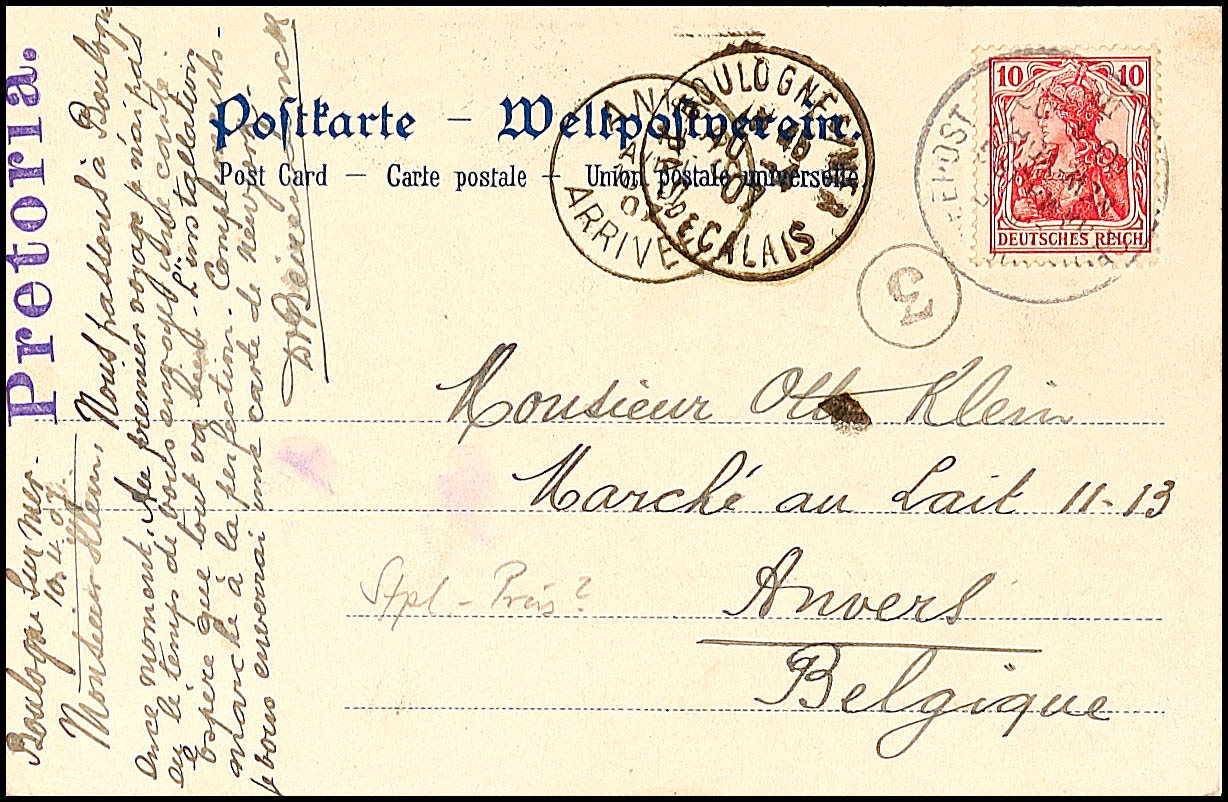 Pretoria.
Boulogne sur mer.
10.4.07.
Monsieur Klein,
Nous passons à Boulogne
en ce moment. Au premier voyage n'ai pas
eu le temps de vous envoyer une carte.
Espère que tout va bien. L'installation
marche à la perfection. Compliments.
Je vous enverrai une carte de
Postkarte – Weltpostverein.
Post Card – Carte postale – Union postale universelle
ANVERS
ARRIVÉE
BOULOGNE S MER
PAS DE CALAIS
07
10 10
DEUTSCHES REICH
3
Monsieur Otto Klein
Marché au Lait 11-13
Anvers
Belgique